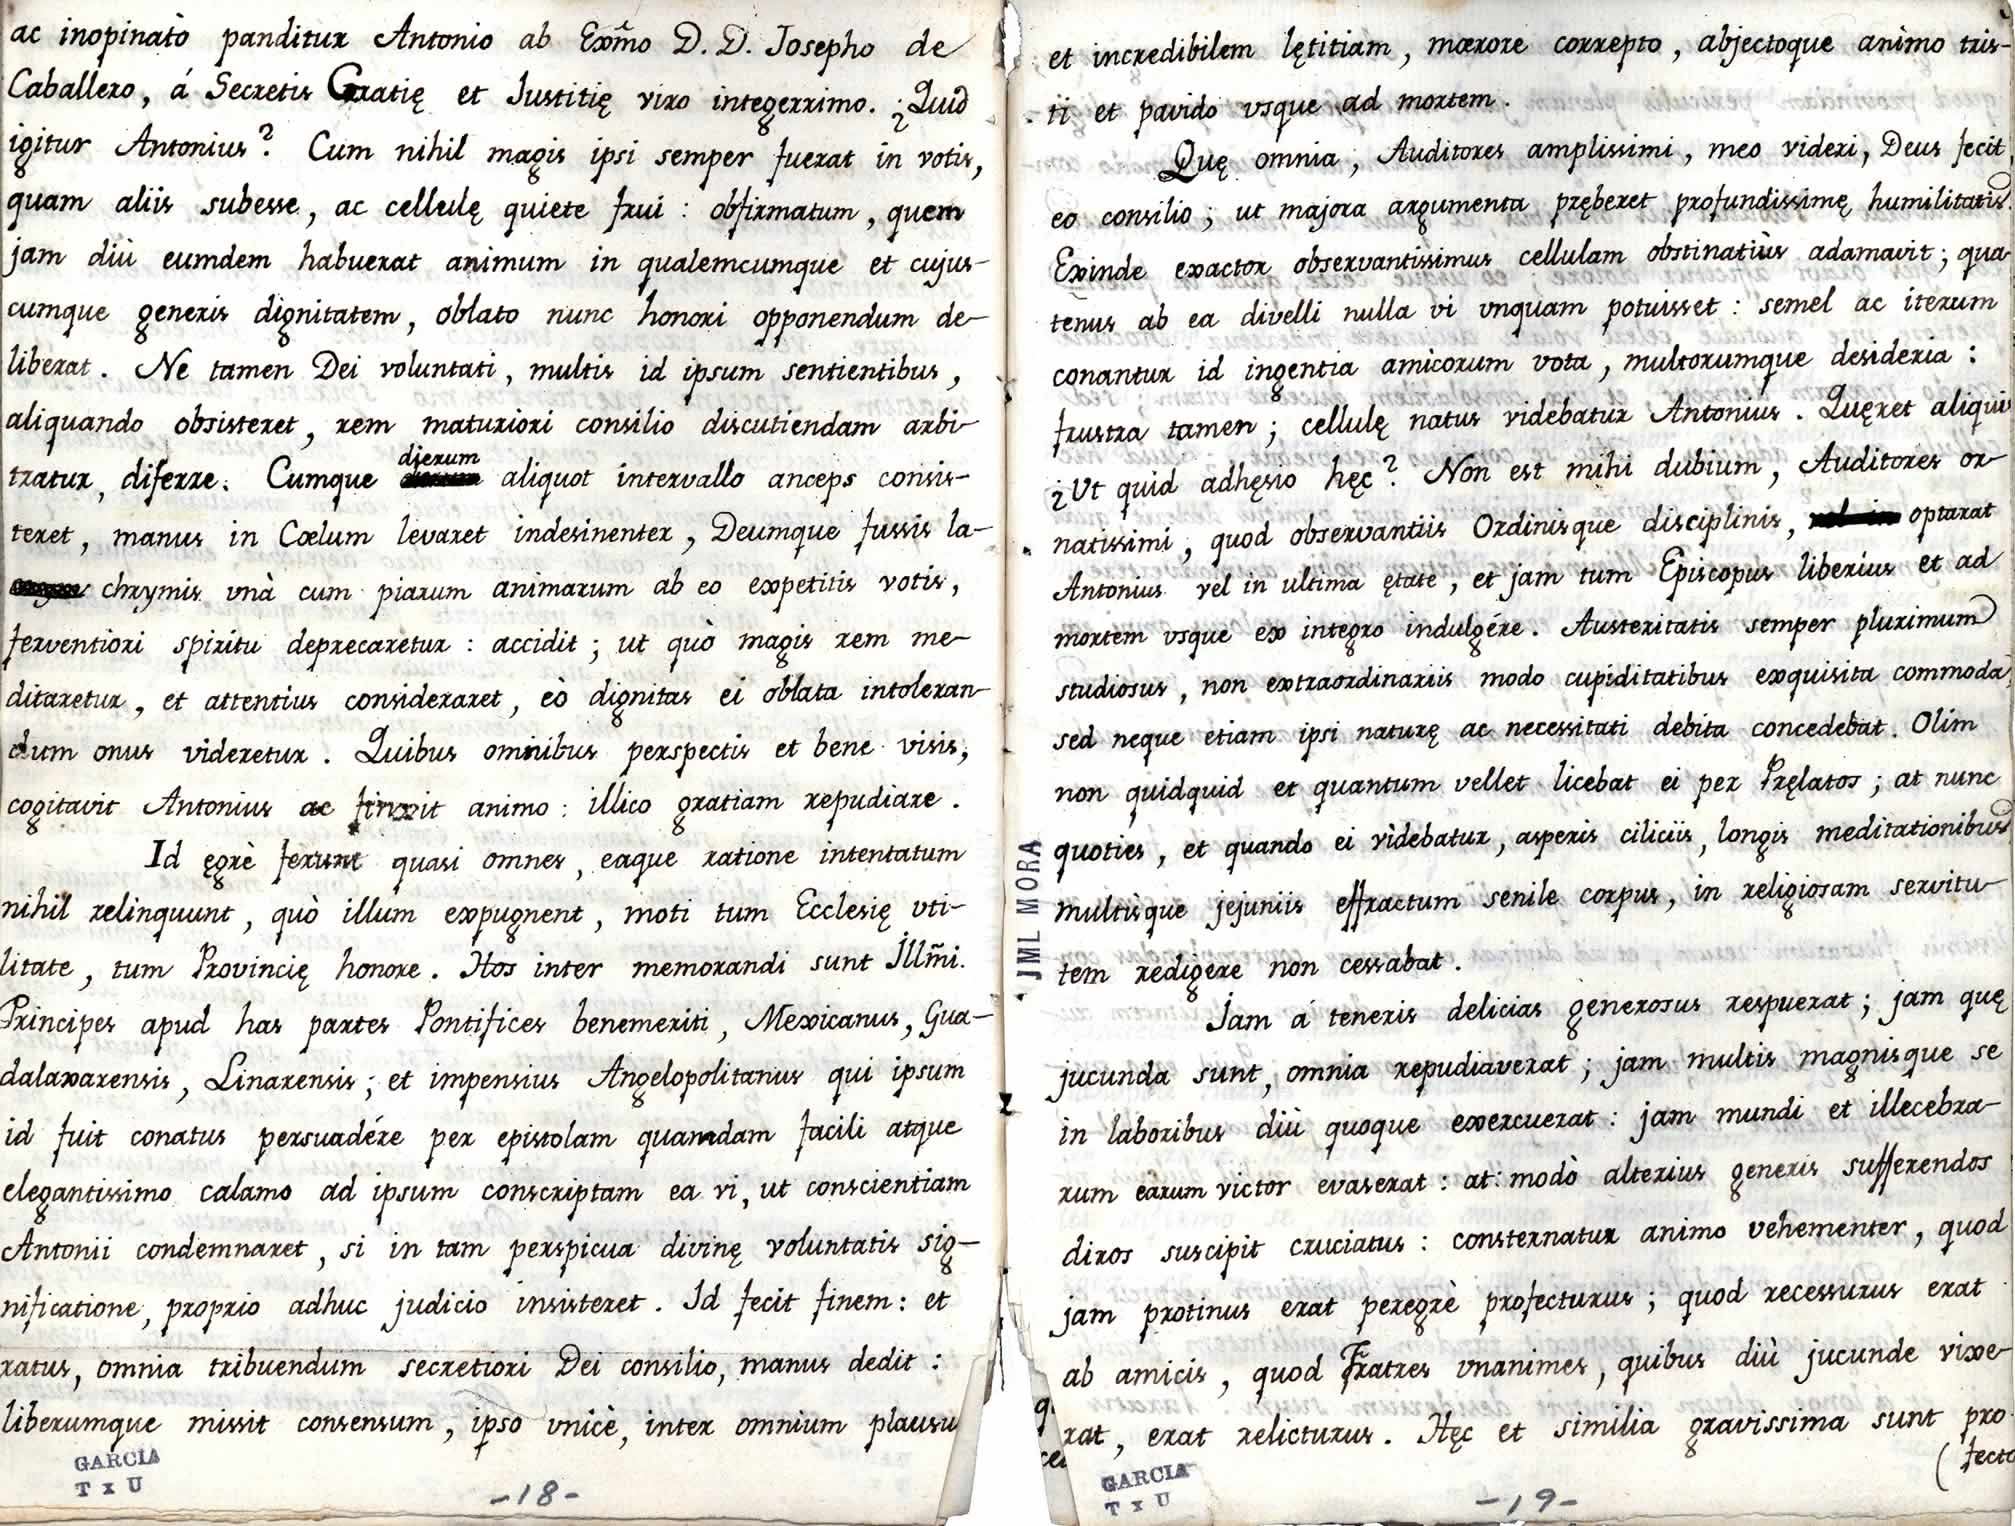 ac inopinatò panditur Antonio ab Exm̃o D. D. Josepho de
Caballero, á Secretis Gratię et Justitię viro integerrimo. ¿Quid
igitur Antonius? Cum nihil magis ipsi semper fuerat in votis,
quam aliis subesse, ac cellulę quiete frui: obfirmatum, quem
jam diù eumdem habuerat animum in qualemcumque et cujus-
cumque generis dignitatem, oblato nunc honori opponendum de-
liberat. Ne tamen Dei voluntati, multis id ipsum sentientibus,
aliquando obsisteret, rem maturiori consilio discutiendam arbi-
tratur, diferre. Cumque dierum aliquot intervallo anceps consis-
teret, manus in Cœlum levaret indesinenter, Deumque fussis la-
chrymis unà cum piarum animarum ab eo expetitis votis,
ferventiori spiritu deprecaretur: accidit; ut quò magis rem me-
ditaretur, et attentius consideraret, eò dignitas ei oblata intoleran-
dum onus videretur. Quibus ominibus perspectis et bene visis,
cogitavit Antonius ac finxit animo: illico gratiam repudiare.
Id ęgrè ferunt quasi omnes, eaque ratione intentatum
nihil relinquunt, quò illum expugnent, moti tum Ecclesię vti-
litate, tum Provincię honore. Hos inter memorandi sunt Illm̃i.
Principes apud has partes Pontifices benemeriti, Mexicanus, Gua-
dalaxarensis, Linarensis; et impensius Angelopolitanus qui ipsum
id fuit conatus persuadére per epistolam quamdam facili atque
elegantissimo calamo ad ipsum conscriptam ea vi, ut conscientiam
Antonii condemnaret, si in tam perspicua divinę voluntatis sig-
nificatione, proprio adhuc judicio insisteret. Id fecit finem: et
ratus, omnia tribuendum secretiori Dei consilio, manus dedit:
liberumque missit consensum, ipso vnicè, inter omnium plausu
GARCIA
T x U
-18-
et incredibilem lętitiam, mœrore correpto, abjectoque animo tris-
ti et pavido vsque ad mortem.
Quę omnia, Auditores amplissimi, meo videri, Deus fecit
eo consilio; ut majora argumenta pręberet profundissimę humilitatis.
Exinde exactor observantissimus cellulam obstinatiùs adamavit; qua
tenus ab ea divelli nulla vi vnquam potuisset: semel ac iterum
conantur id ingentia amicorum vota, multorumque desideria:
frustra tamen; cellulę natus videbatur Antonius. Quęret aliquis
¿Ut quid adhęsio hęc? Non est mihi dubium, Auditores or-
natissimi, quod observantiis Ordinisque disciplinis, optarat
Antonius vel in ultima ętate, et jam tum Episcopus liberius et ad
mortem vsque ex integro indulgére. Austeritatis semper plurimum
studiosus, non extraordinariis modo cupiditatibus exquisita commoda
sed neque etiam ipsi naturę ac necessitati debita concedebat. Olim
non quidquid et quantum vellet licebat ei per Pręlatos; at nunc
quoties, et quando ei videbatur, asperis ciliciis, longis meditationibus
multisque jejuniis effractum senile corpus, in religiosam servitu-
tem redigere non cessabat.
Jam á teneris delicias generosus respuerat; jam quę
jucunda sunt, omnia repudiaverat; jam multis magnisque se
in laboribus diù quoque exercuerat: jam mundi et illecebra-
rum earum victor evaserat: at modò alterius generis sufferendos
diros suscipit cruciatus: consternatur animo vehementer, quod
jam protinus erat peregrè profecturus; quod recessurus erat
ab amicis, quod Fratres vnanimes, quibus diù jucunde vixe-
rat, erat relicturus. Hęc et similia gravissima sunt pro
(fecto
JML MORA
GARCIA
T x U
-19-